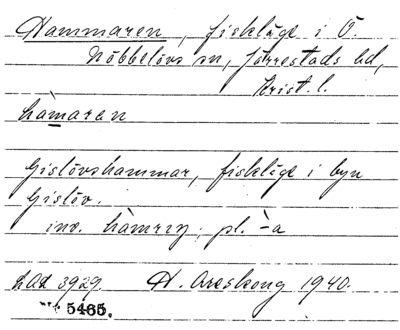 Hammaren, fiskläge i Ö.
Nöbbelövs sn, Järrestads hd,
Krist. l.
hàmaren
Gislövshammar, fiskläge i byn
Gislöv.
inv. hàmrıŋ; pl. -̀a
LAL 3929. H. Areskoug 1940.
5465.